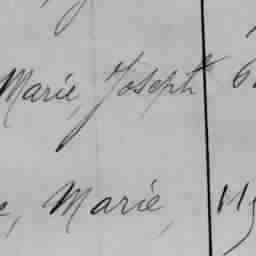 Marie, Joseph
Marie,